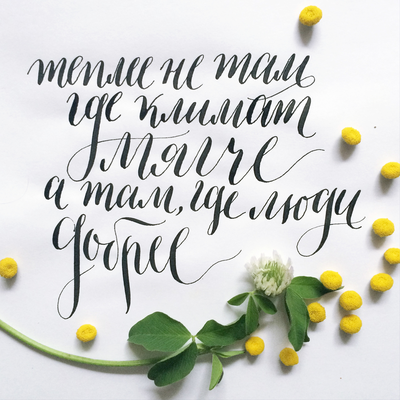 теплее не там
где климат
мягче
а там, где люди
добрее